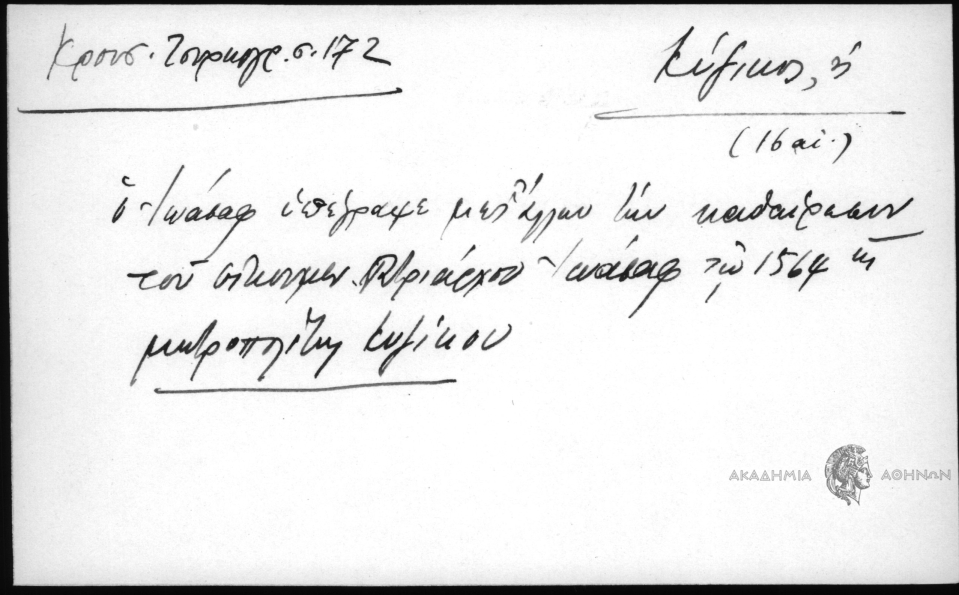 Κρουσ. Τουρκογρ. σ. 172
Κύζικος, ἡ
(16 αἰ.)
ὁ Ἰωάσαφ ὑπέγραψε μετ' ἄλλων τὴν καθαίρεσιν
τοῦ οἰκουμεν. Πατριάρχου Ἰωάσαφ τῷ 1564 ὡς
μητροπολίτης Κυζίκου
ΑΚΑΔΗΜΙΑ ΑΘΗΝΩΝ